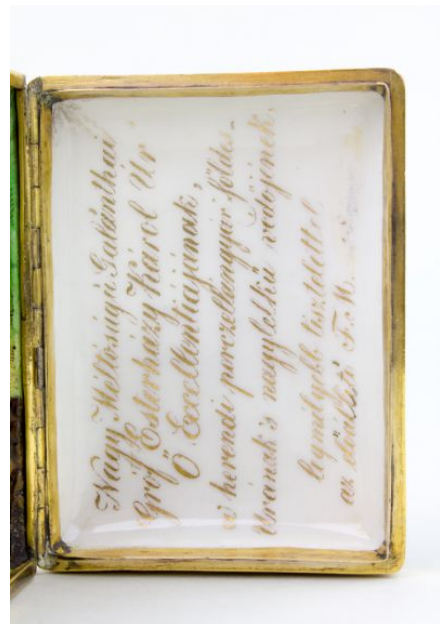 Nagy Méltóságú Galánthai
Gróf Esterházy Károl Úr
Ő Excellentiájának,
a' herendi porczellángyár földes-
Urának 's nagylelkű védőjének,
legmélyebb tisztelettel
az F. M.